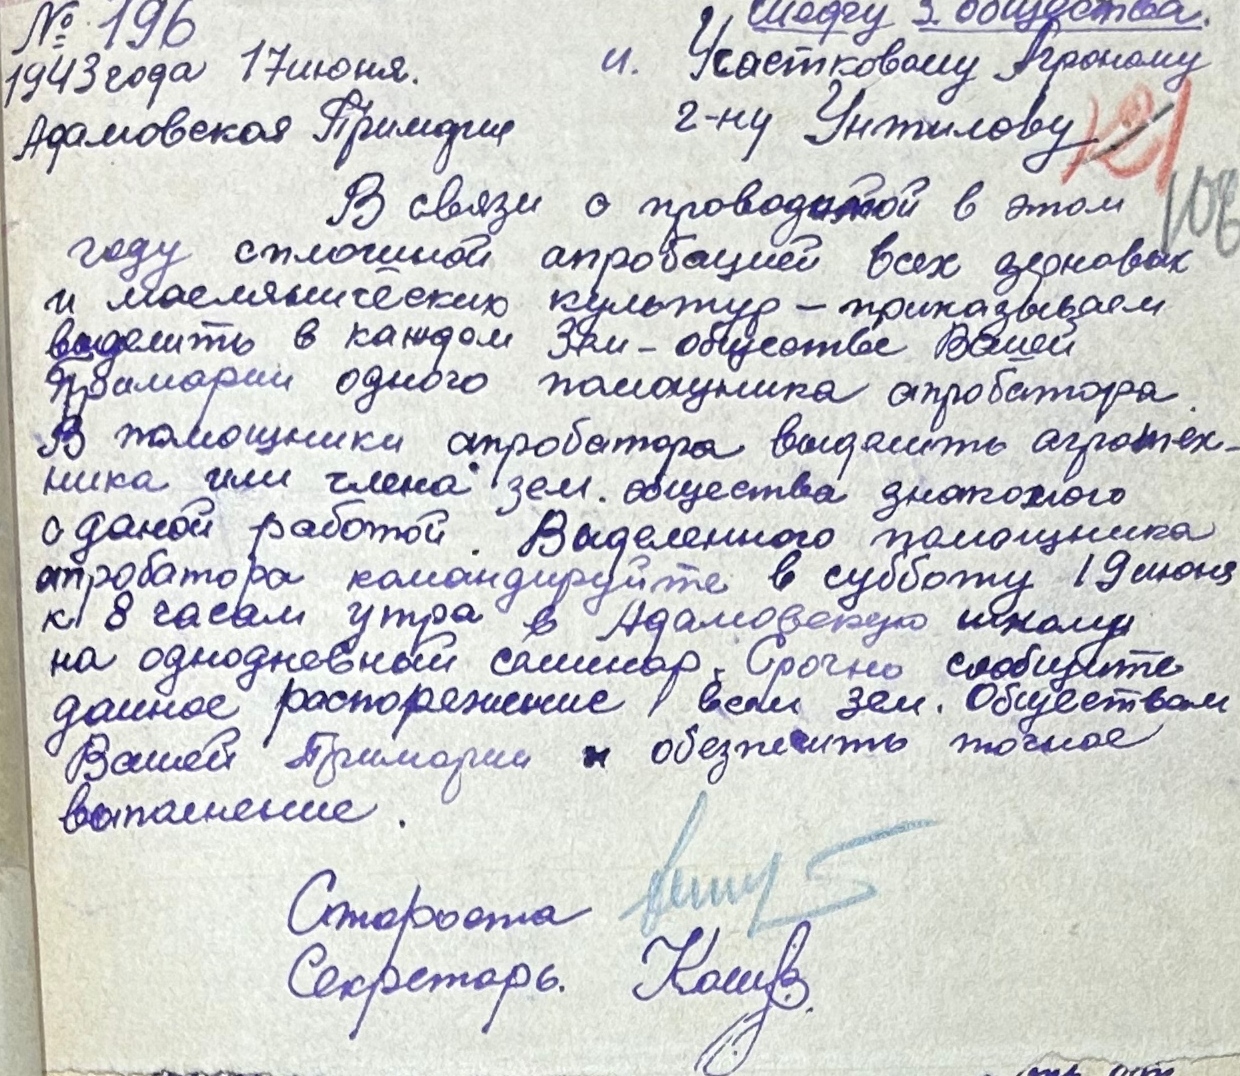 № 196
Шефу 2 общества.
1943 года 17 июня. и. Участковому Агроному
Адамовская Примэрие г-ну Унтилову
121
106
В связи с проводимой в этом
году сплошной апробацией всех зерновых
и маслянических культур – приказываем
выделить в каждом Зем-обществе Вашей
Примарии одного помощника апробатора.
В помощники апробатора выделить агротех-
ника или члена зем. общества знакомого
с даной работой. Выделенного помощника
апробатора командируйте в субботу 19 июня
к 8 часам утра в Адамовскую школу
на однодневный семинар. Срочно сообщите
данное распоряжение всем зем. Обществам
Вашей Примарии и обезпечить точное
выполнение.
Староста
Секретарь.